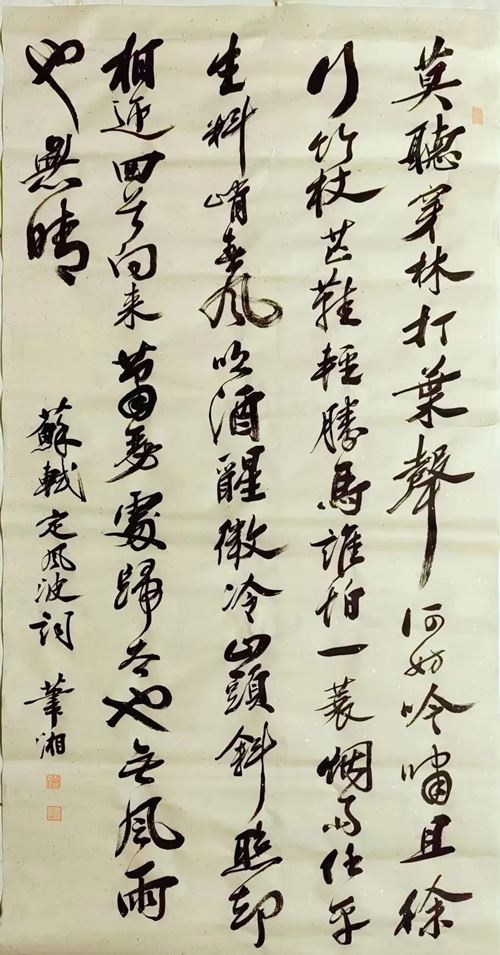 莫聽穿林打葉聲何妨吟嘯且徐
行竹杖芒鞋輕勝馬誰怕一蓑烟雨任平
生料峭春風吹酒醒微冷山頭斜照却
相迎回首向来蕭瑟處歸去也無風雨
也無晴
蘇軾定風波詞 筆湘